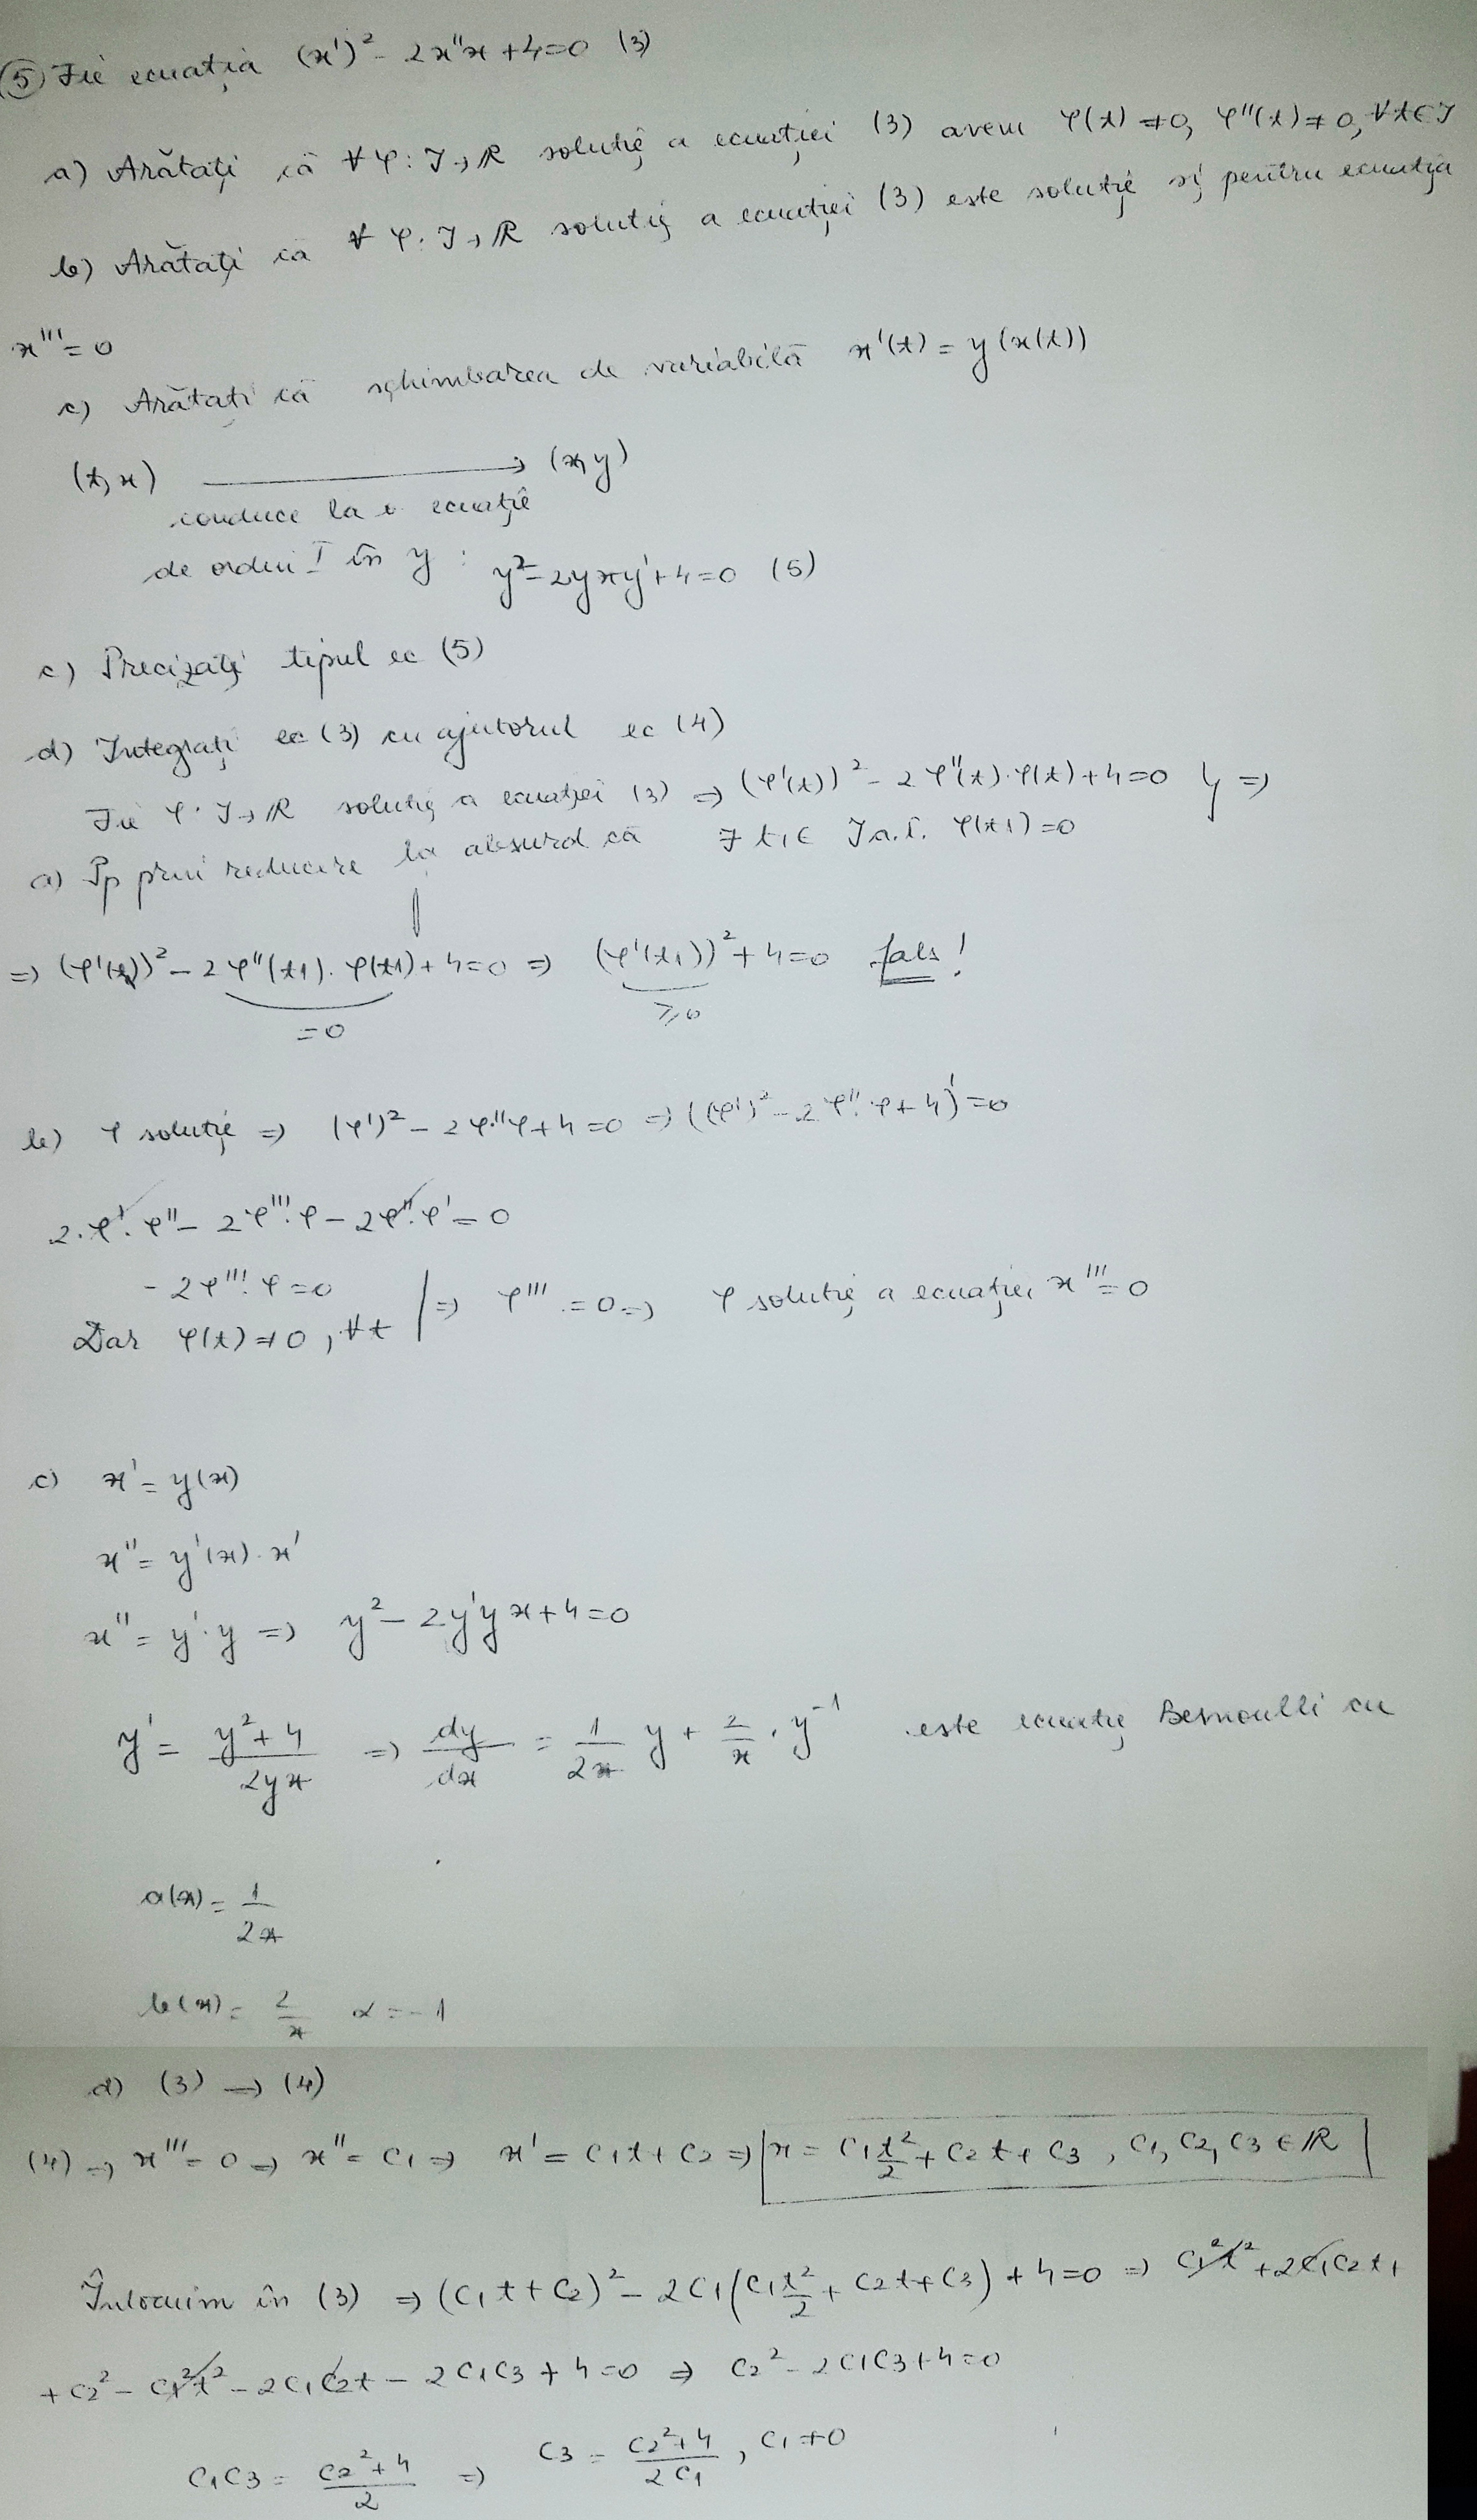 ⑤ Fie ecuația (x')² - 2x''x + 4 = 0 (3)
a) Arătați că ∀ φ: J→ℝ soluție a ecuației (3) avem φ(t) ≠ 0, φ''(t) ≠ 0, ∀t∈J
b) Arătați că ∀ φ: J→ℝ soluție a ecuației (3) este soluție și pentru ecuația
x''' = 0
c) Arătați că schimbarea de variabilă x'(t) = y(x(t))
(t,x) → (x,y)
conduce la o ecuație
de ordin I în y : y² - 2yxy' + 4 = 0 (5)
c) Precizați tipul ec (5)
d) Integrați ec (3) cu ajutorul ec (4)
Fie φ: J→ℝ soluție a ecuației (3) ⇒ (φ'(t))² - 2φ''(t)·φ(t) + 4 = 0 } ⇒
a) Pp prin reducere la absurd că ∃ t1 ∈ J a.î. φ(t1) = 0
⇒ (φ'(t1))² - 2φ''(t1)·φ(t1) + 4 = 0 ⇒ (φ'(t1))² + 4 = 0 fals!
= 0 ≥ 0
b) φ soluție ⇒ (φ')² - 2φ''φ + 4 = 0 ⇒ ((φ')² - 2φ''·φ + 4)' = 0
2·φ'·φ'' - 2φ'''·φ - 2φ''·φ' = 0
- 2φ'''·φ = 0
Dar φ(t) ≠ 0, ∀t | ⇒ φ''' = 0 ⇒ φ soluție a ecuației x''' = 0
c) x' = y(x)
x'' = y'(x)·x'
x'' = y'·y ⇒ y² - 2y'yx + 4 = 0
y' = (y²+4)/(2yx) ⇒ dy/dx = 1/(2x) y + 2/x · y⁻¹ este ecuație Bernoulli cu
a(x) = 1/(2x)
b(x) = 2/x α = -1
d) (3) → (4)
(4) ⇒ x''' = 0 ⇒ x'' = C1 ⇒ x' = C1t + C2 ⇒ x = C1 t²/2 + C2t + C3 , C1, C2, C3 ∈ ℝ
Înlocuim în (3) ⇒ (C1t + C2)² - 2C1(C1 t²/2 + C2t + C3) + 4 = 0 ⇒ C1²t² + 2C1C2t +
+ C2² - C1²t² - 2C1C2t - 2C1C3 + 4 = 0 ⇒ C2² - 2C1C3 + 4 = 0
C1C3 = (C2²+4)/2 ⇒ C3 = (C2²+4)/(2C1) , C1 ≠ 0